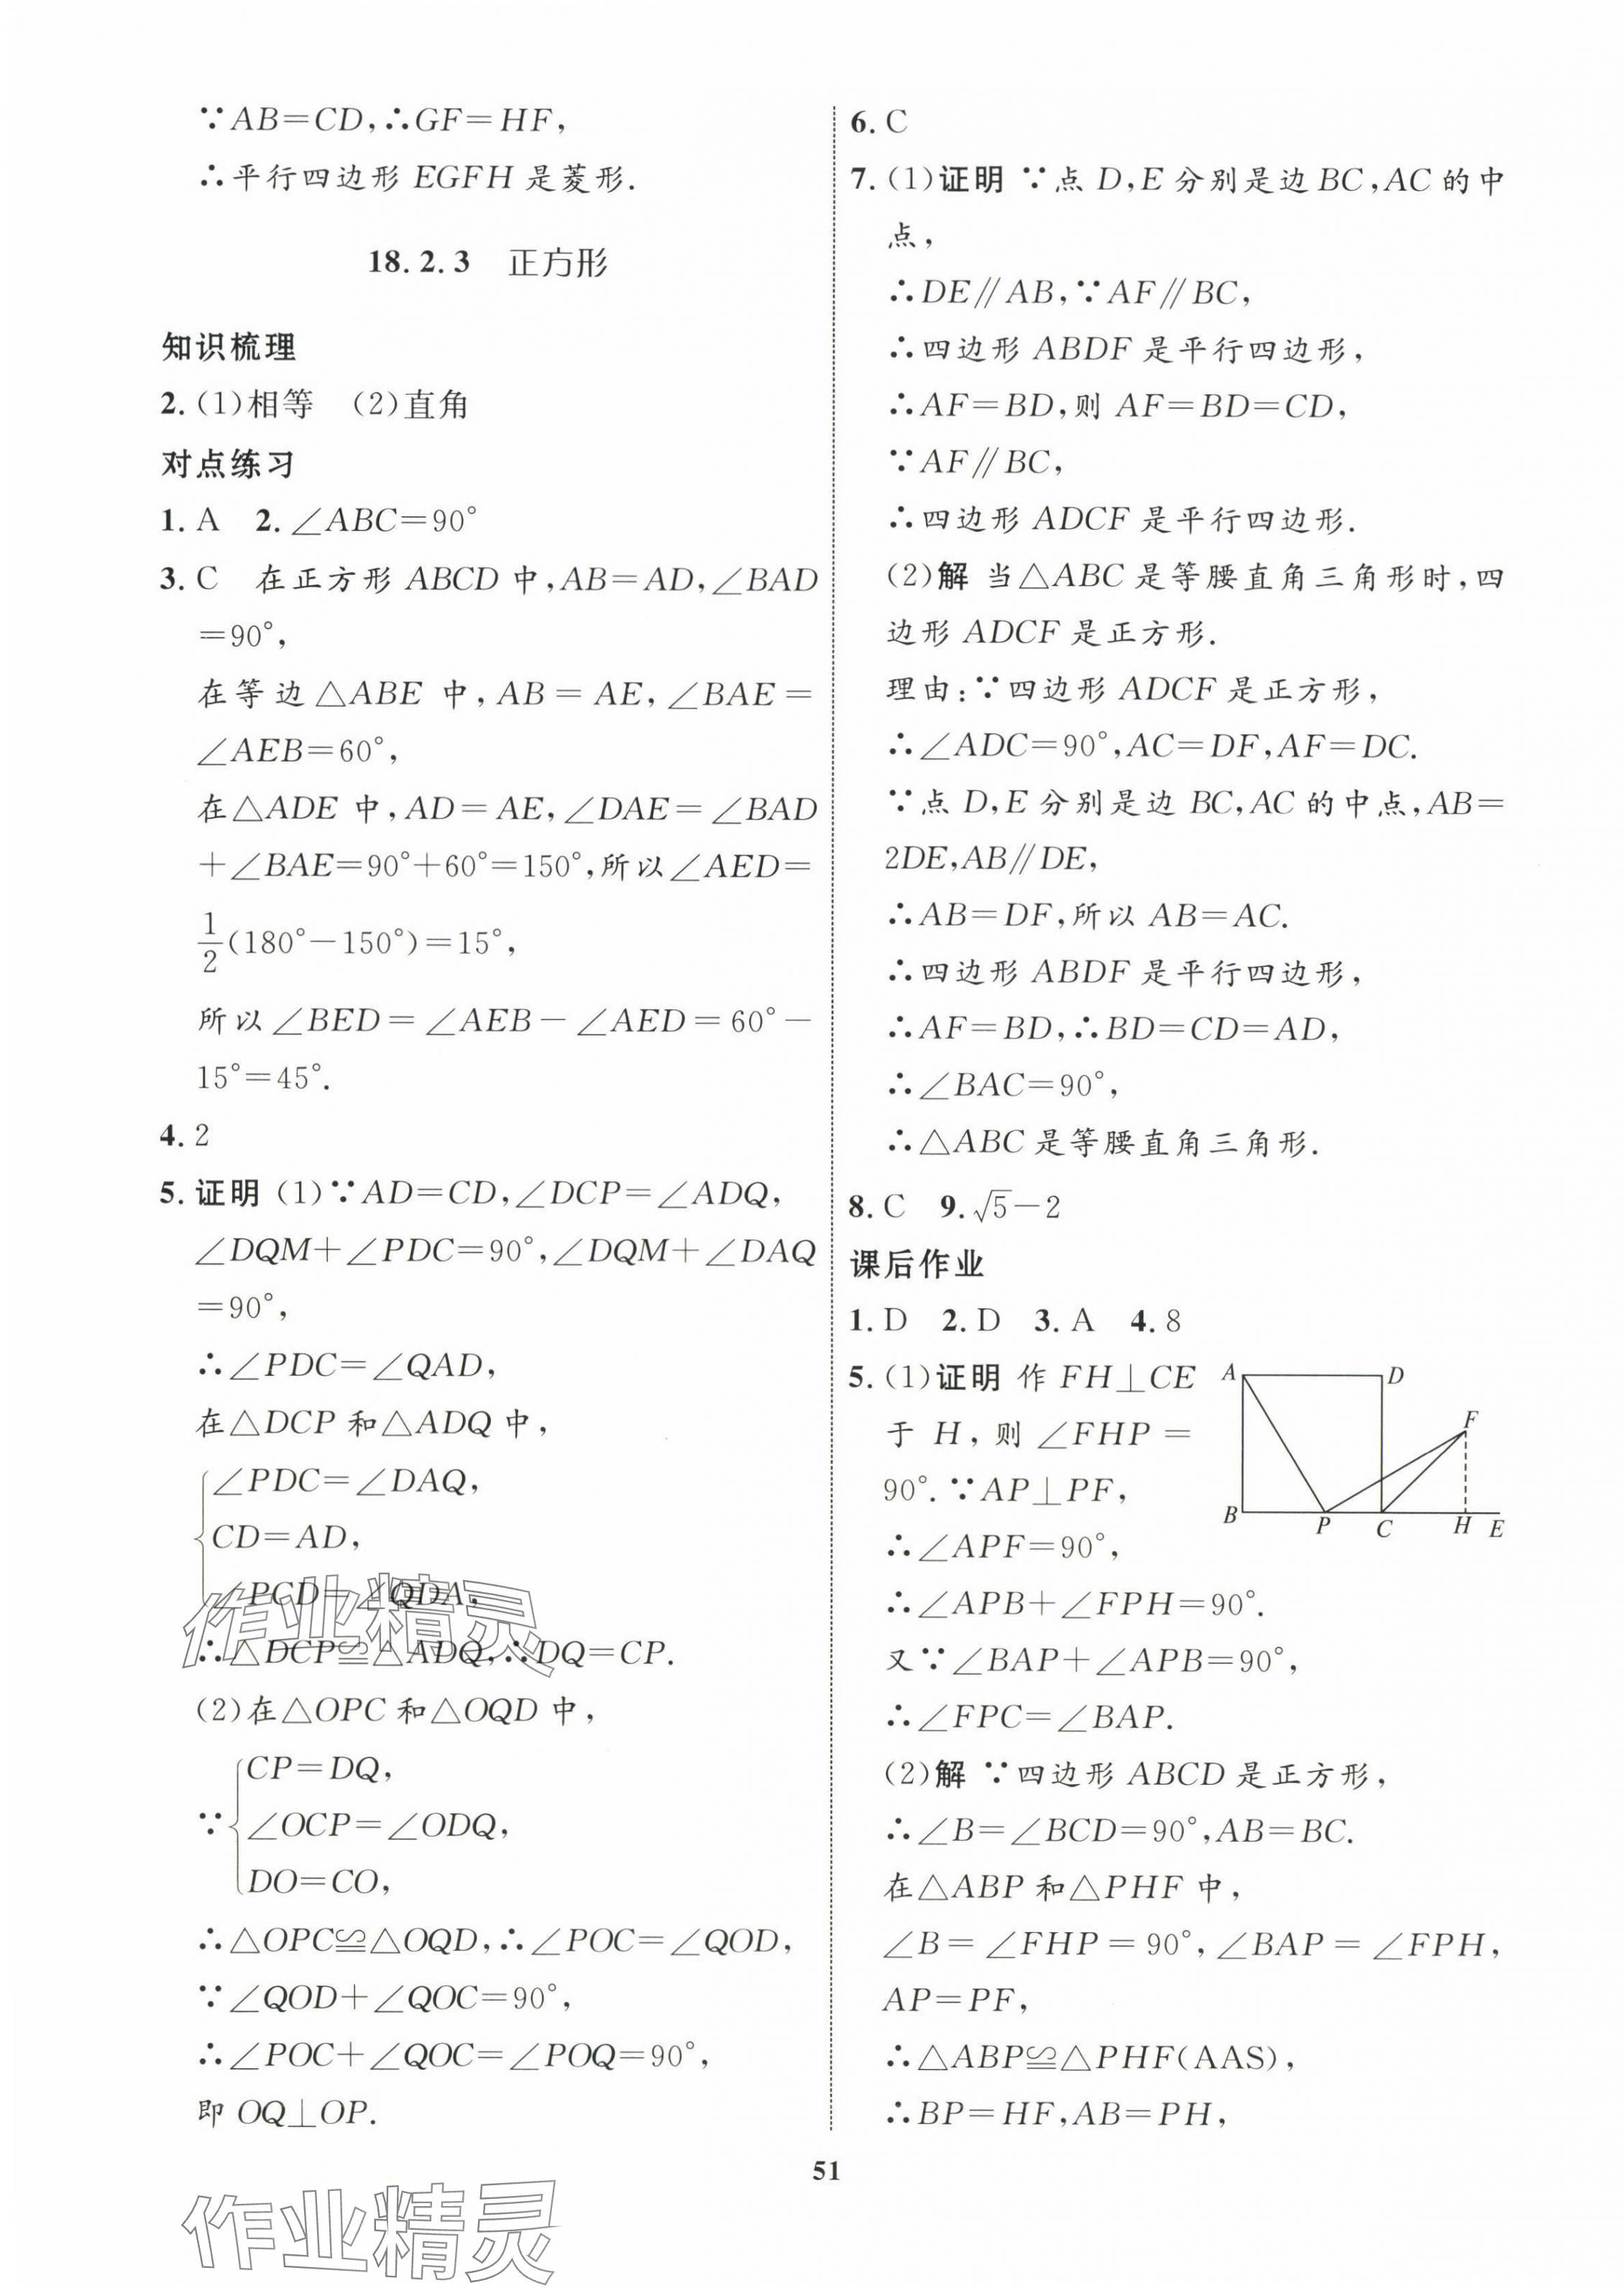 ∵AB=CD,∴GF=HF,
∴平行四边形 EGFH 是菱形.
18.2.3 正方形
知识梳理
2.(1)相等 (2)直角
对点练习
1. A 2. ∠ABC=90°
3. C 在正方形 ABCD 中,AB=AD,∠BAD
=90°,
在等边△ABE 中,AB=AE,∠BAE=
∠AEB=60°,
在△ADE 中,AD=AE,∠DAE=∠BAD
+∠BAE=90°+60°=150°,所以∠AED=
1/2(180°-150°)=15°,
所以∠BED=∠AEB-∠AED=60°-
15°=45°.
4. 2
5. 证明 (1)∵AD=CD,∠DCP=∠ADQ,
∠DQM+∠PDC=90°,∠DQM+∠DAQ
=90°,
∴∠PDC=∠QAD,
在△DCP 和△ADQ 中,
∠PDC=∠DAQ,
CD=AD,
∠PCD=∠QDA,
∴△DCP≌△ADQ,∴DQ=CP.
(2)在△OPC 和△OQD 中,
CP=DQ,
∵ ∠OCP=∠ODQ,
DO=CO,
∴△OPC≌△OQD,∴∠POC=∠QOD,
∵∠QOD+∠QOC=90°,
∴∠POC+∠QOC=∠POQ=90°,
即 OQ⊥OP.
6. C
7. (1)证明 ∵点 D,E 分别是边 BC,AC 的中
点,
∴DE∥AB,∵AF∥BC,
∴四边形 ABDF 是平行四边形,
∴AF=BD,则 AF=BD=CD,
∵AF∥BC,
∴四边形 ADCF 是平行四边形.
(2)解 当△ABC 是等腰直角三角形时,四
边形 ADCF 是正方形.
理由:∵四边形 ADCF 是正方形,
∴∠ADC=90°,AC=DF,AF=DC.
∵点 D,E 分别是边 BC,AC 的中点,AB=
2DE,AB∥DE,
∴AB=DF,所以 AB=AC.
∴四边形 ABDF 是平行四边形,
∴AF=BD,∴BD=CD=AD,
∴∠BAC=90°,
∴△ABC 是等腰直角三角形.
8. C 9. √5-2
课后作业
1. D 2. D 3. A 4. 8
5. (1)证明 作 FH⊥CE
于 H,则 ∠FHP=
90°.∵AP⊥PF,
∴∠APF=90°,
∴∠APB+∠FPH=90°.
又∵∠BAP+∠APB=90°,
∴∠FPC=∠BAP.
A D
F
B P C H E
(2)解 ∵四边形 ABCD 是正方形,
∴∠B=∠BCD=90°,AB=BC.
在△ABP 和△PHF 中,
∠B=∠FHP=90°,∠BAP=∠FPH,
AP=PF,
∴△ABP≌△PHF(AAS),
∴BP=HF,AB=PH,
51
作业精灵
作业精灵